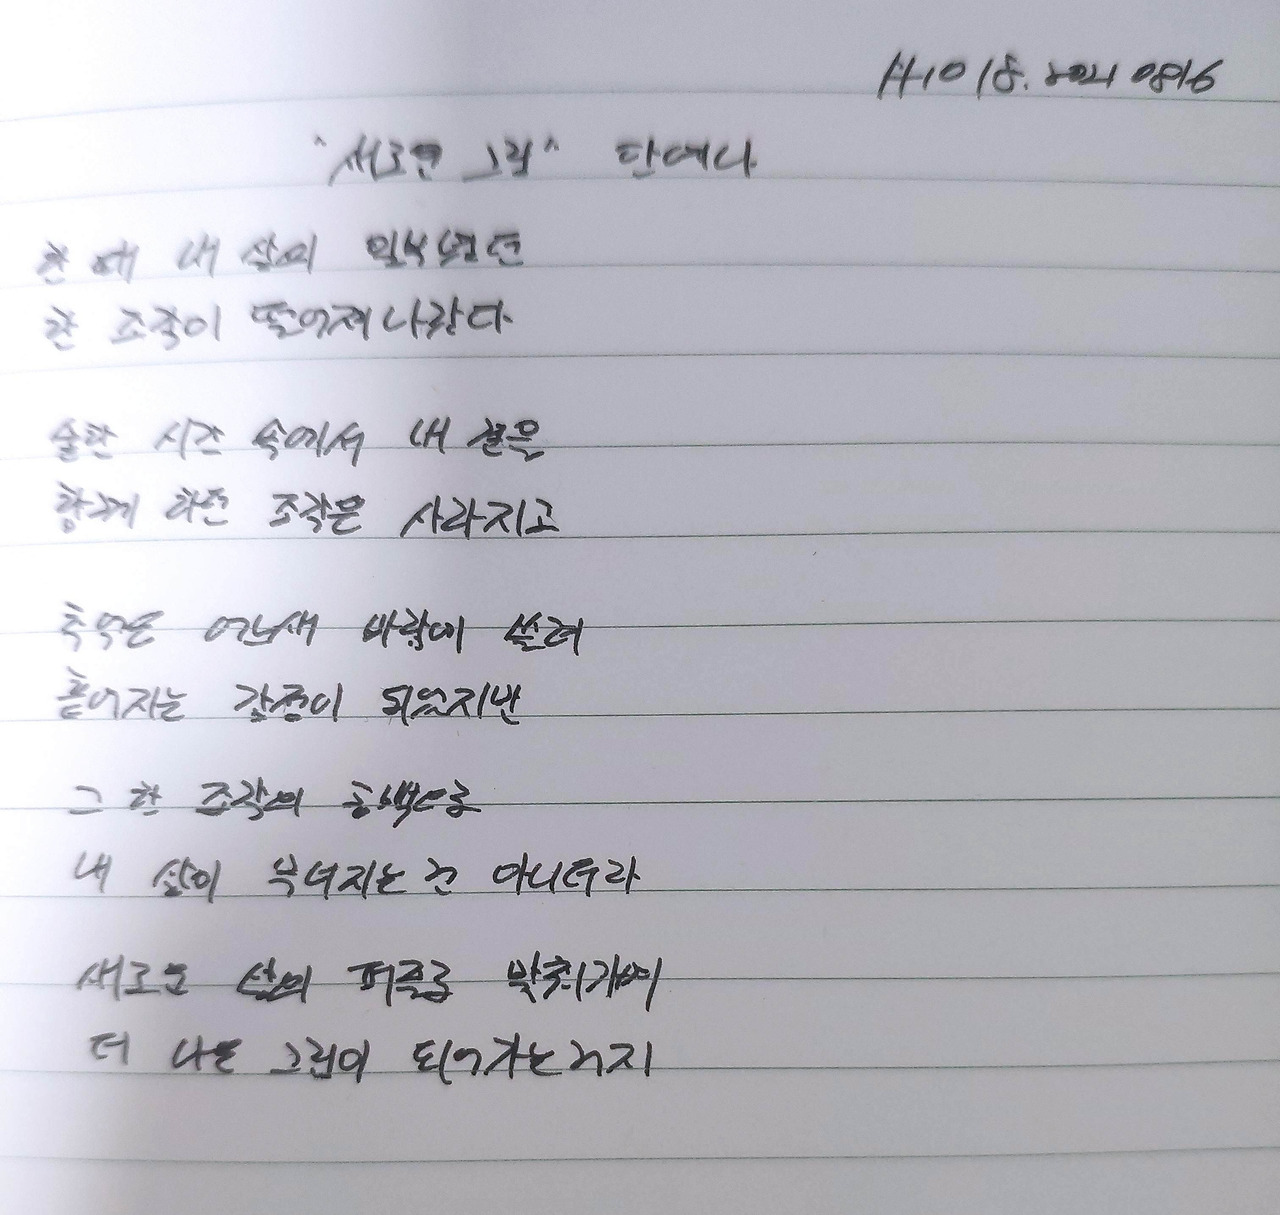 #1018. 2021 0816
"새로운 그림" 단예나
한 때 내 삶의 일부였던
한 조각이 떨어져나갔다
숱한 시간 속에서 내 곁을
함께 하던 조각은 사라지고
추억은 어느새 바람에 쓸려
흩어지는 감정이 되었지만
그 한 조각의 공백으로
내 삶이 무너지는 건 아니더라
새로운 삶의 퍼즐로 맞춰가며
더 나은 그림이 되어가는거지